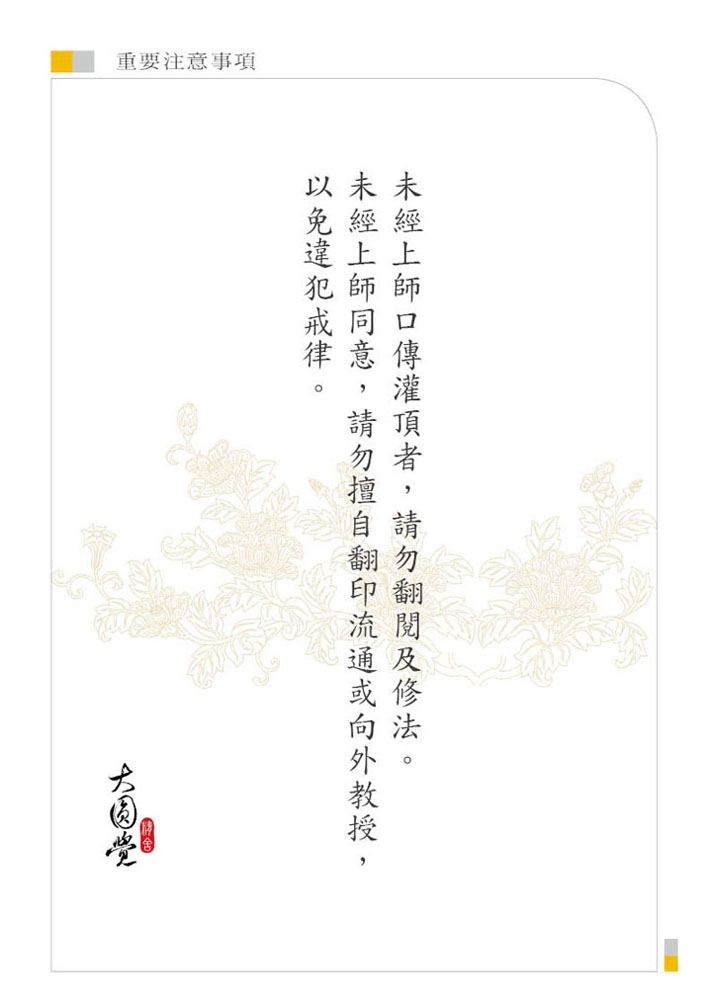 重要注意事項
未經上師口傳灌頂者，請勿翻閱及修法。
未經上師同意，請勿擅自翻印流通或向外教授，
以免違犯戒律。
大圓覺
精舍